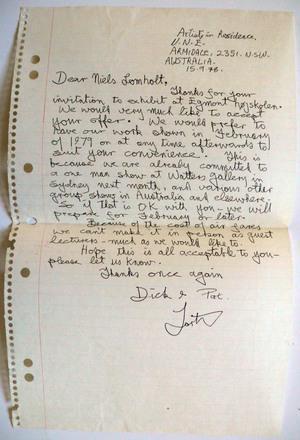 Artists in Residence,
U.N.E.
ARMIDALE, 2351. N.S.W.
AUSTRALIA.
15.9.78.
Dear Niels Lomholt,
Thanks for your
invitation to exhibit at Egmont Højskolen.
We would very much like to accept
your offer. We would prefer to
have our work shown in February
of 1979 or at any time afterwards to
suit your convenience. This is
because we are already committed to
a one man show at Watters Gallery in
Sydney next month, and various other
group shows in Australia and elsewhere.
So if that is OK with you - we will
prepare for February or later.
Because of the cost of air fares
we can't make it in person as guest
lecturers - much as we would like to.
Hope this is all acceptable to you -
please let us know.
Thanks once again
Dick & Pat